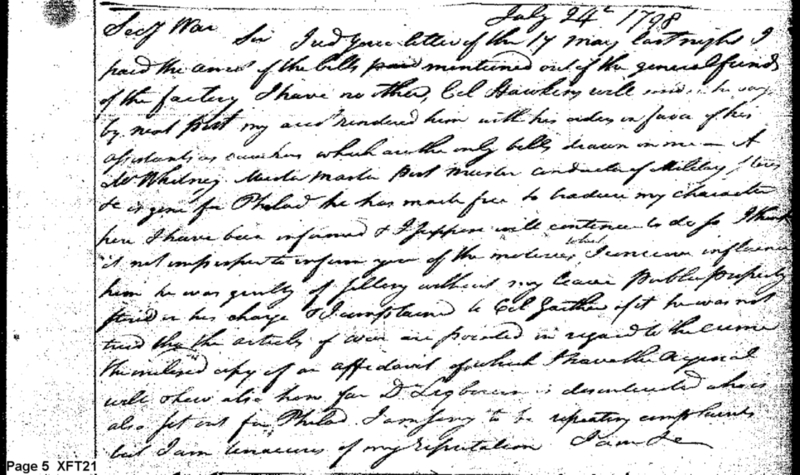 July 24th 1798
Secy War
Sir I recd your letter of the 17 May last night I
paid the amot of the bills paid mentioned out of the general funds
of the factory I have no other, Col Hawkins will send he says
by next post my acct rendered him with his orders in favor of his
assistants as vouchers which are the only bills drawn on me — A
Mr Whitney Muster Master Post Master conductor of Military Stores
&c is gone for Philad he has made free to traduce my character
here I have been informed & I suppose will continue to do so I think
it not improper to inform you of the motives, which I conceive influence
him he was guilty of selling without my leave public property
stored in his charge & I complained to Col Gaither of it he was not
tried tho the articles of war are pointed in regard to the crime
the inclosed copy of an affidavit of which I have the original
will shew also how far Dr is discontented who is
also set out for Philad. I am sorry to be repeating complaints
but I am tenacious of my reputation I am &c
Page 5 XFT21